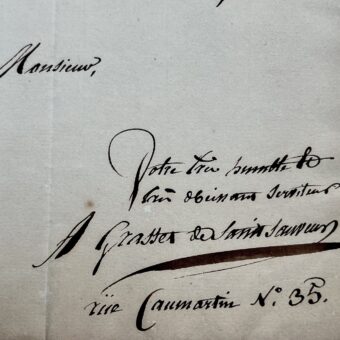 Monsieur,
Votre très humble &
très obeissant serviteur
A Grasset de Saint Sauveur
rüe Caumartin N.º 35.